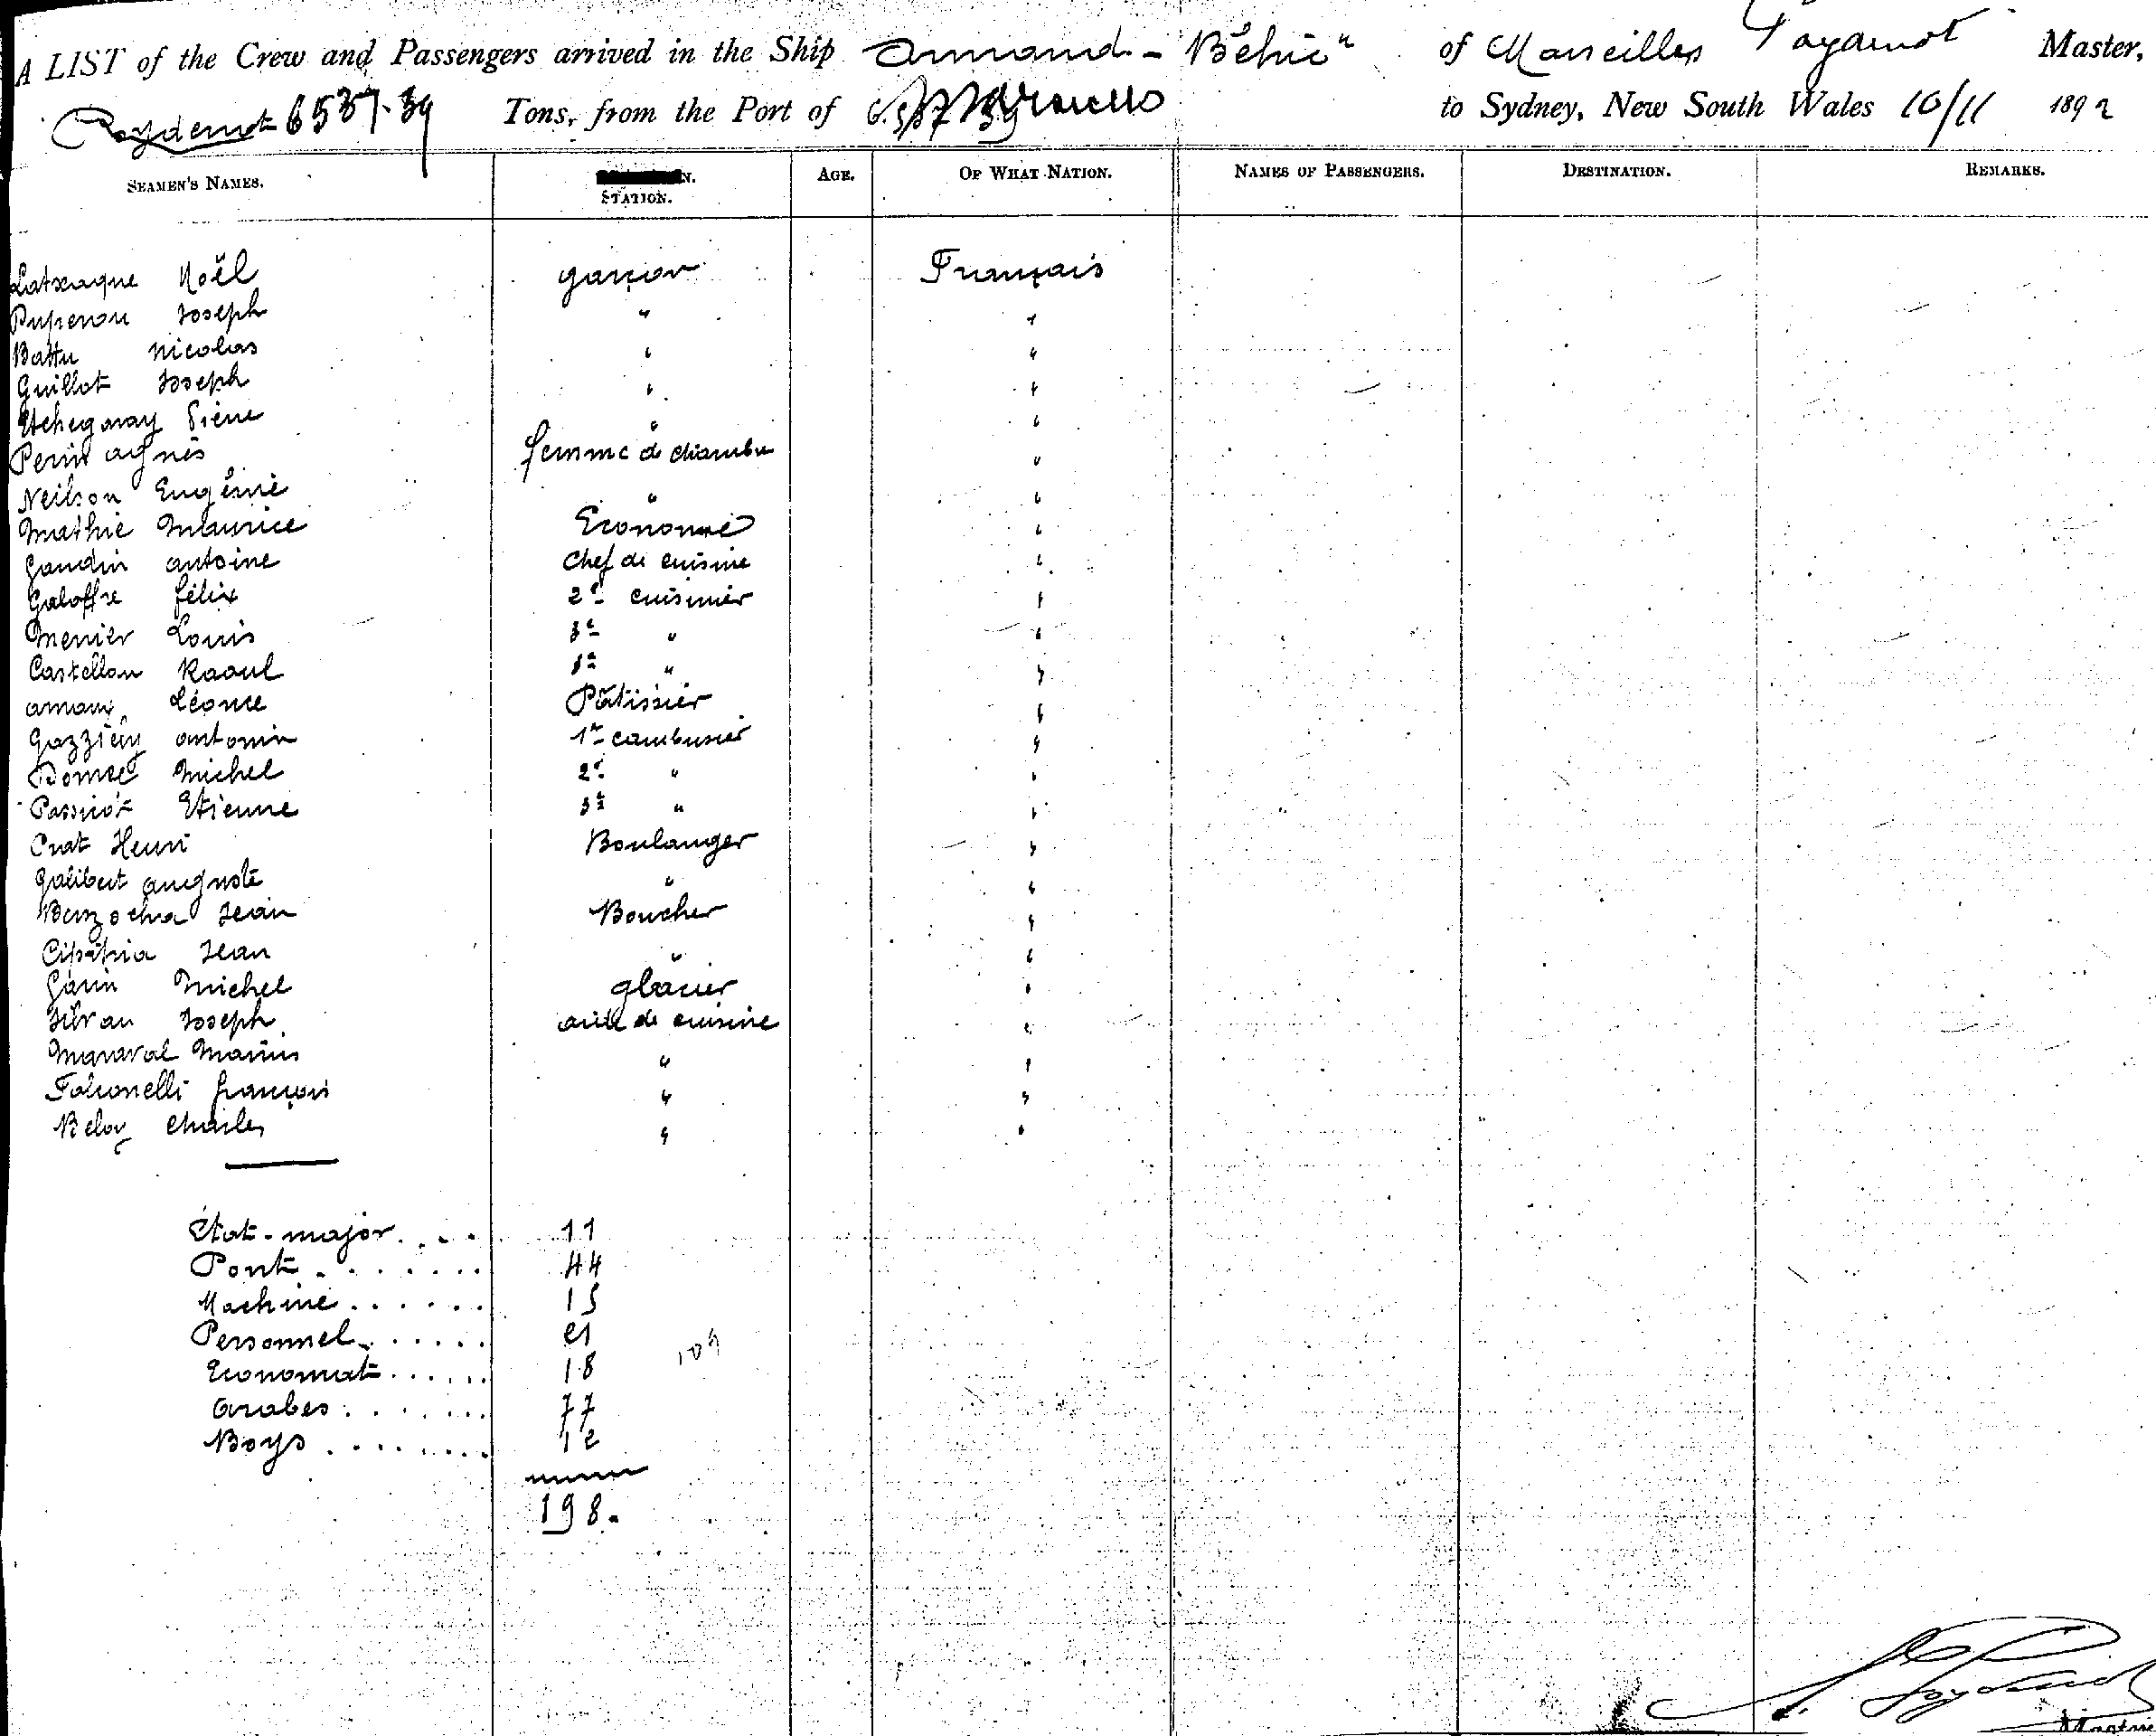 A LIST of the Crew and Passengers arrived in the Ship Armand-Béhic" of Marseilles Master,
6537.39 Tons, from the Port of Marseilles to Sydney, New South Wales 10/11 1892
SEAMEN'S NAMES. STATION. AGE. OF WHAT NATION. NAMES OF PASSENGERS. DESTINATION. REMARKS.
Latxague Noël garçon Français
Joseph " "
Battu Nicolas " "
Guillot Joseph " "
Etchegaray Pierre " "
Perin Agnès femme de chambre "
Neilson Eugénie " "
Mathie Maurice Econome "
Gaudin Antoine Chef de cuisine "
Galoffre Félix 2e cuisinier "
Menier Louis 3e " "
Castellan Raoul " "
Léonce Pâtissier "
Antonin 1er cambusier "
Michel 2e " "
Etienne 3e " "
Crat Henri Boulanger "
Galibert Auguste " "
Jean Boucher "
Jean " "
Garin Michel glacier "
Joseph aide de cuisine "
Maraval Marius " "
Falconelli François " "
Charles " "
Etat-major.... 11
Pont....... 44
Machine...... 15
Personnel...... 21
Economat...... 18
Arabes....... 77
Boys........ 12
109
198.